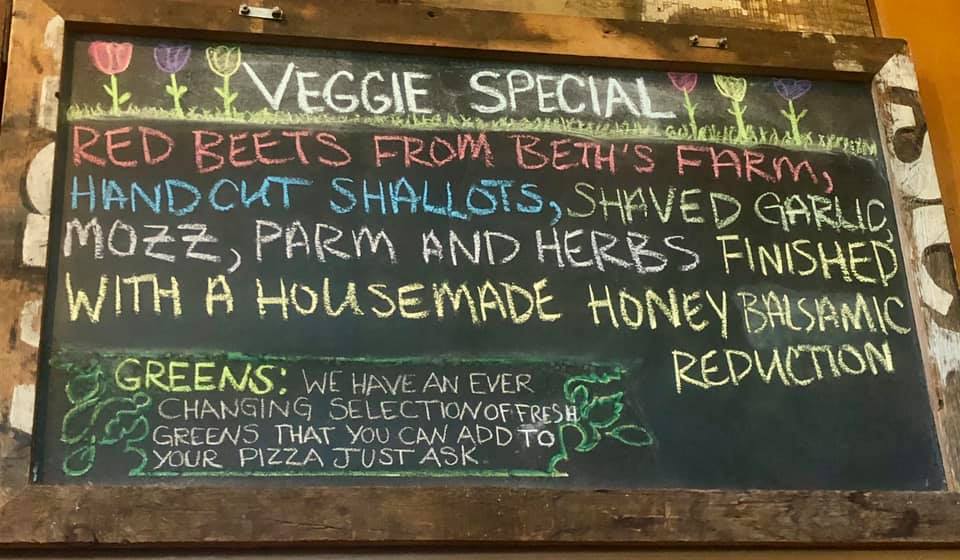 VEGGIE SPECIAL
RED BEETS FROM BETH'S FARM,
HANDCUT SHALLOTS, SHAVED GARLIC,
MOZZ, PARM AND HERBS FINISHED
WITH A HOUSEMADE HONEY BALSAMIC
REDUCTION
GREENS: WE HAVE AN EVER
CHANGING SELECTION OF FRESH
GREENS THAT YOU CAN ADD TO
YOUR PIZZA JUST ASK.